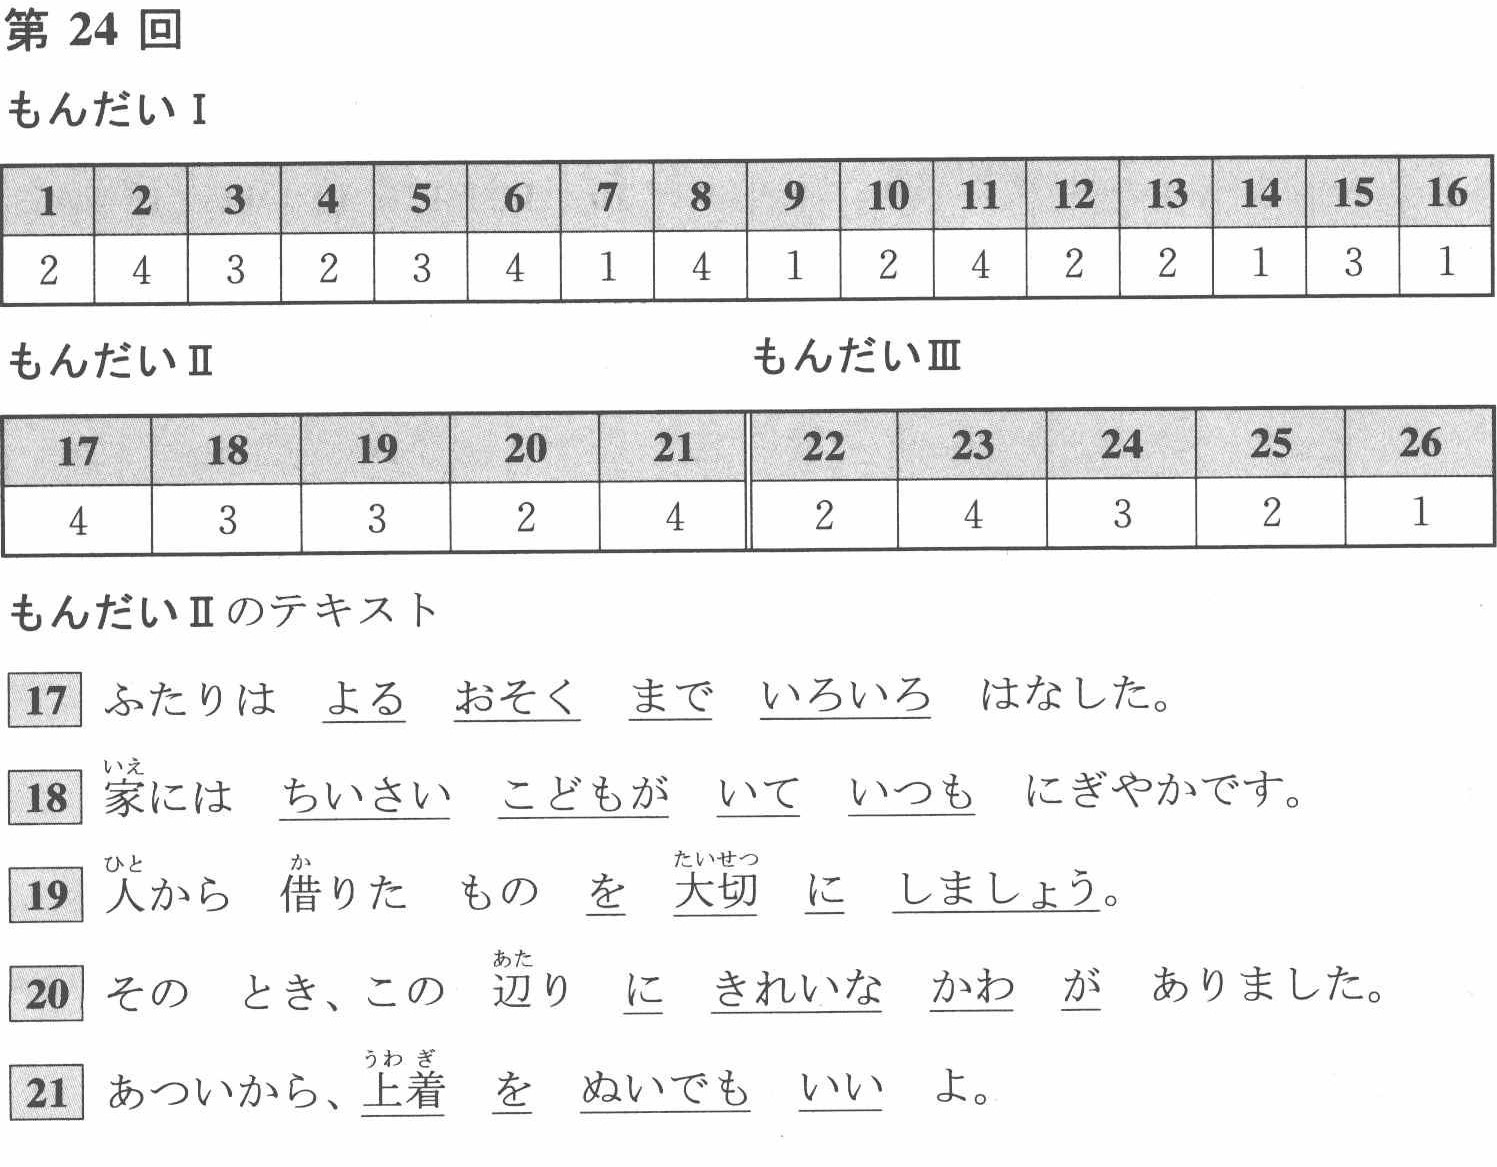 第 24 回
もんだいⅠ
1 2 3 4 5 6 7 8 9 10 11 12 13 14 15 16
2 4 3 2 3 4 1 4 1 2 4 2 2 1 3 1
もんだいⅡ もんだいⅢ
17 18 19 20 21 22 23 24 25 26
4 3 3 2 4 2 4 3 2 1
もんだいⅡのテキスト
17 ふたりは よる おそく まで いろいろ はなした。
いえ
18 家には ちいさい こどもが いて いつも にぎやかです。
ひと か たいせつ
19 人から 借りた もの を 大切 に しましょう。
あた
20 その とき、この 辺り に きれいな かわ が ありました。
うわ ぎ
21 あついから、上着 を ぬいでも いい よ。